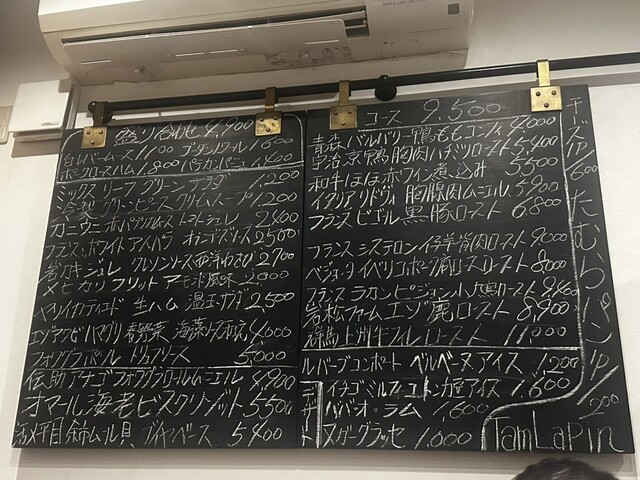 盛り合わせ 4,900
白レバームース 1100 ブータンノワール 1600
ボンクロースハム 1,800 パテカンパーニュ 1,400
ミックスリーフグリーンサラダ 1,200
冷製グリンピースクリームスープ 1,200
カニ ウニ トマトジュレ 2400
フランスホワイトアスパラ オランデーズソース 2500
ジュレ クレソンソース 2700
メヒカリフリット アーモンド風味 2,000
生ハム 温玉 2,500
ハマグリ 春野菜 海藻 4000
フォアグラポワレ トリュフソース 5000
伝助アナゴフォアグラロールムニエル 8,900
オマール海老ビスクリゾット 5500
平目 ムール貝 ブイヤベース 5400
コース 9,500
青森バルバリー鴨ももコンフィ 4,000
宇治京鴨胸肉ハチミツロースト 5,400
和牛ほほ赤ワイン煮込み 5500
イタリアリドヴォー胸腺肉ムニエル 5,900
フランスビゴール黒豚ロースト 6,800
フランスシステロン仔羊背肉ロースト 9000
ベジョータイベリコ ロースト 8,000
フランスラカンピジョン小鳩ロースト 9,400
岩松ファームエゾ鹿ロースト 8,900
群馬上州牛フィレロースト 11,000
ルバーブコンポート ベルベーヌアイス 1,200
イチゴミルフィーユ アイス 1,600
ババ・オ・ラム 1,600
ヌガーグラッセ 1,000
デザート
チーズ1P/600
たむらパン1P/200
Tam Lapin